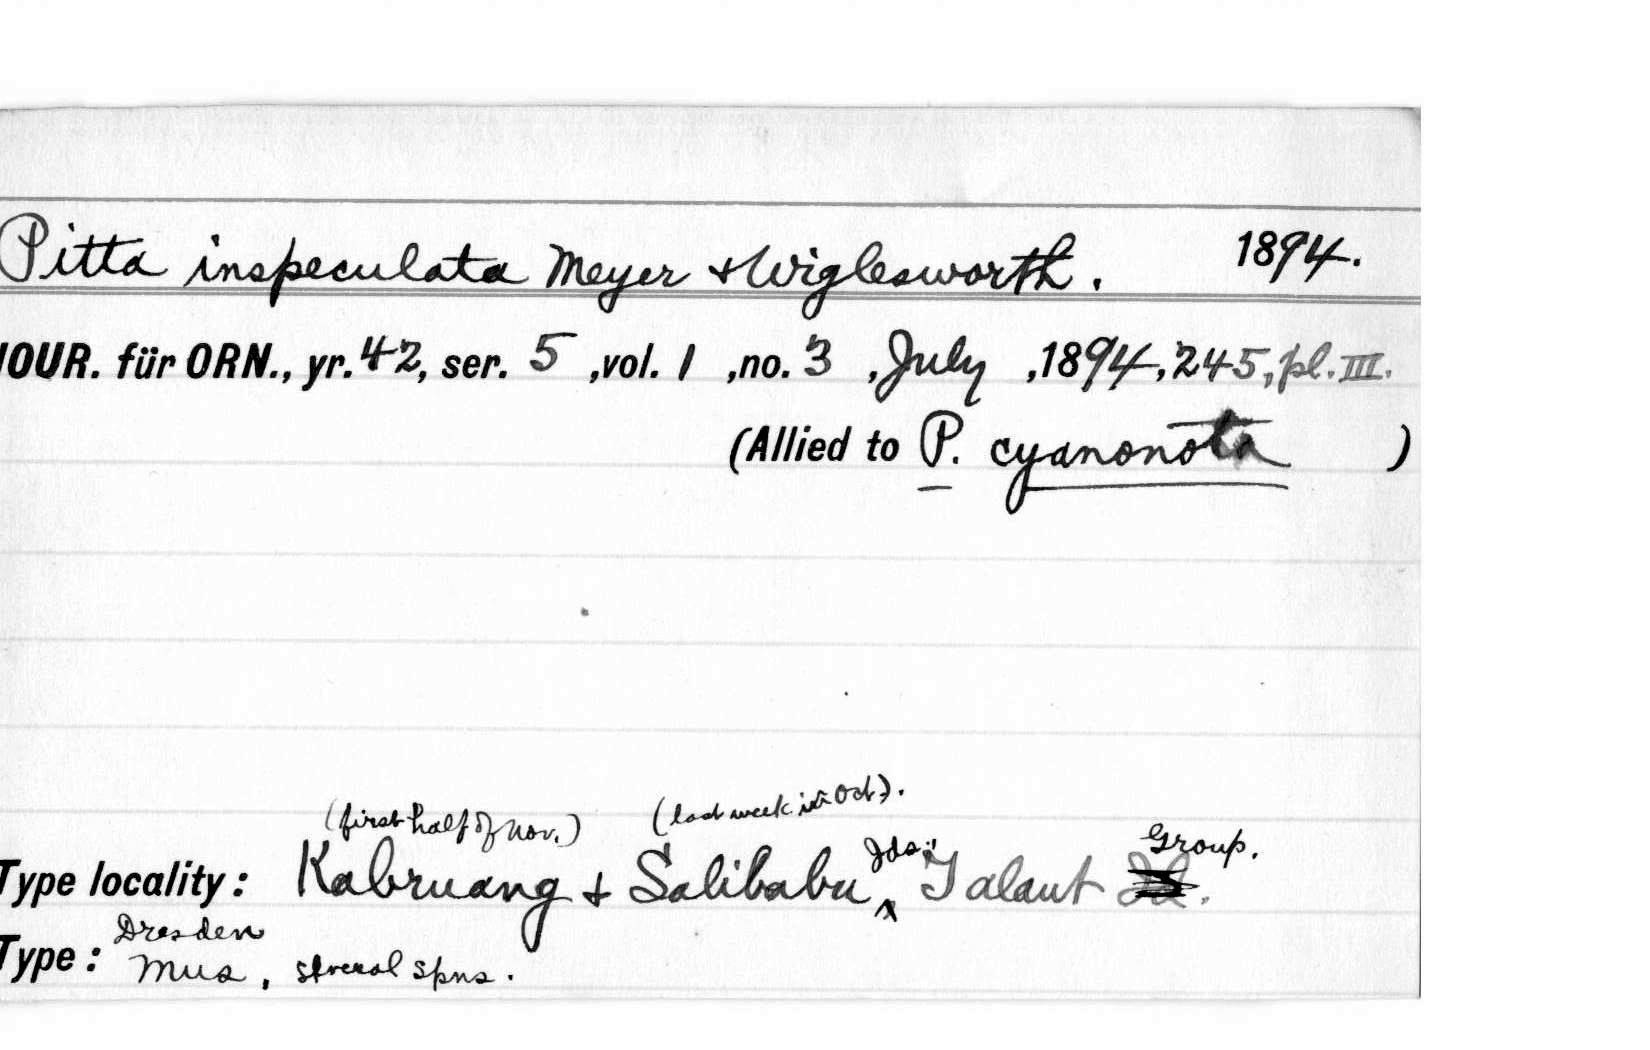 Pitta inspeculata Meyer & Wiglesworth. 1894.
JOUR. für ORN., yr. 42, ser. 5, vol. 1, no. 3, July, 1894, 245, pl. III.
(Allied to P. cyanonota)
(first half of Nov.) (last week in Oct).
Type locality: Kabruang & Salibabu Ids., Talaut Group.
Dresden
Type: Mus, several spns.